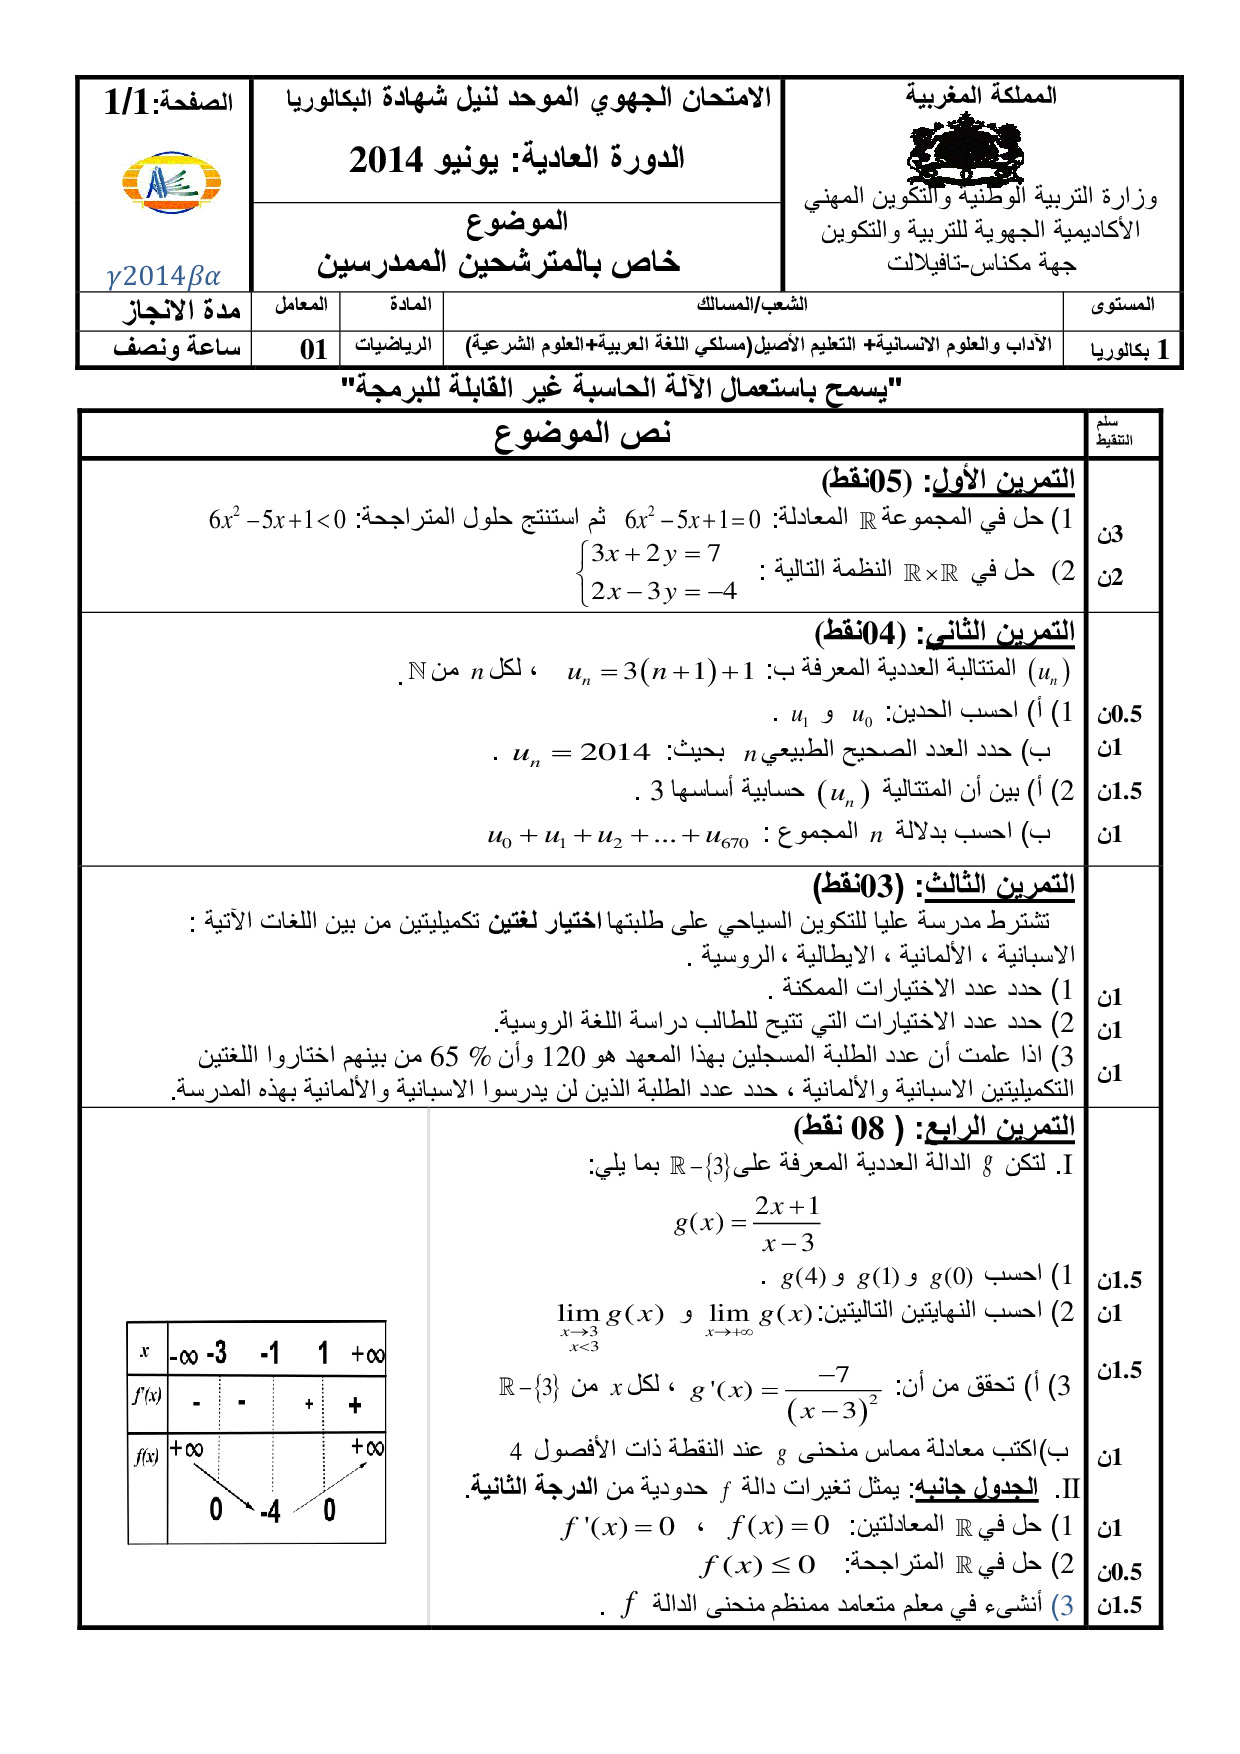 المملكة المغربية
وزارة التربية الوطنية والتكوين المهني
الأكاديمية الجهوية للتربية والتكوين
جهة مكناس-تافيلالت
الامتحان الجهوي الموحد لنيل شهادة البكالوريا
الدورة العادية: يونيو 2014
الموضوع
خاص بالمترشحين الممدرسين
الصفحة:1/1
γ2014βα
المستوى الشعب/المسالك المادة المعامل مدة الانجاز
1 بكالوريا الآداب والعلوم الانسانية+ التعليم الأصيل(مسلكي اللغة العربية+العلوم الشرعية) الرياضيات 01 ساعة ونصف
"يسمح باستعمال الآلة الحاسبة غير القابلة للبرمجة"
سلم التنقيط نص الموضوع
التمرين الأول: (05نقط)
3ن 1) حل في المجموعة ℝ المعادلة: 6x² − 5x + 1 = 0 ثم استنتج حلول المتراجحة: 6x² − 5x + 1 < 0
2ن 2) حل في ℝ×ℝ النظمة التالية : { 3x + 2y = 7
2x − 3y = −4
التمرين الثاني: (04نقط)
(uₙ) المتتالية العددية المعرفة ب: uₙ = 3(n + 1) + 1 ، لكل n من ℕ .
0.5ن 1) أ) احسب الحدين: u₀ و u₁ .
1ن ب) حدد العدد الصحيح الطبيعي n بحيث: uₙ = 2014 .
1.5ن 2) أ) بين أن المتتالية (uₙ) حسابية أساسها 3 .
1ن ب) احسب بدلالة n المجموع : u₀ + u₁ + u₂ + ... + u₆₇₀
التمرين الثالث: (03نقط)
تشترط مدرسة عليا للتكوين السياحي على طلبتها اختيار لغتين تكميليتين من بين اللغات الآتية :
الاسبانية ، الألمانية ، الايطالية ، الروسية .
1ن 1) حدد عدد الاختيارات الممكنة .
1ن 2) حدد عدد الاختيارات التي تتيح للطالب دراسة اللغة الروسية.
1ن 3) اذا علمت أن عدد الطلبة المسجلين بهذا المعهد هو 120 وأن % 65 من بينهم اختاروا اللغتين
التكميليتين الاسبانية والألمانية ، حدد عدد الطلبة الذين لن يدرسوا الاسبانية والألمانية بهذه المدرسة.
التمرين الرابع: ( 08 نقط)
I. لتكن g الدالة العددية المعرفة على ℝ−{3} بما يلي:
g(x) = (2x + 1)/(x − 3)
1.5ن 1) احسب g(0) و g(1) و g(4) .
1ن 2) احسب النهايتين التاليتين: lim g(x) x→+∞ و lim g(x) x→3 x<3
1.5ن 3) أ) تحقق من أن: g'(x) = −7/(x − 3)² ، لكل x من ℝ−{3}
1ن ب)اكتب معادلة مماس منحنى g عند النقطة ذات الأفصول 4
II. الجدول جانبه: يمثل تغيرات دالة f حدودية من الدرجة الثانية.
1ن 1) حل في ℝ المعادلتين: f(x) = 0 ، f'(x) = 0
0.5ن 2) حل في ℝ المتراجحة: f(x) ≤ 0
1.5ن 3) أنشىء في معلم متعامد ممنظم منحنى الدالة f .
x -∞ -3 -1 1 +∞
f'(x) - - + +
f(x) +∞ +∞
0 -4 0